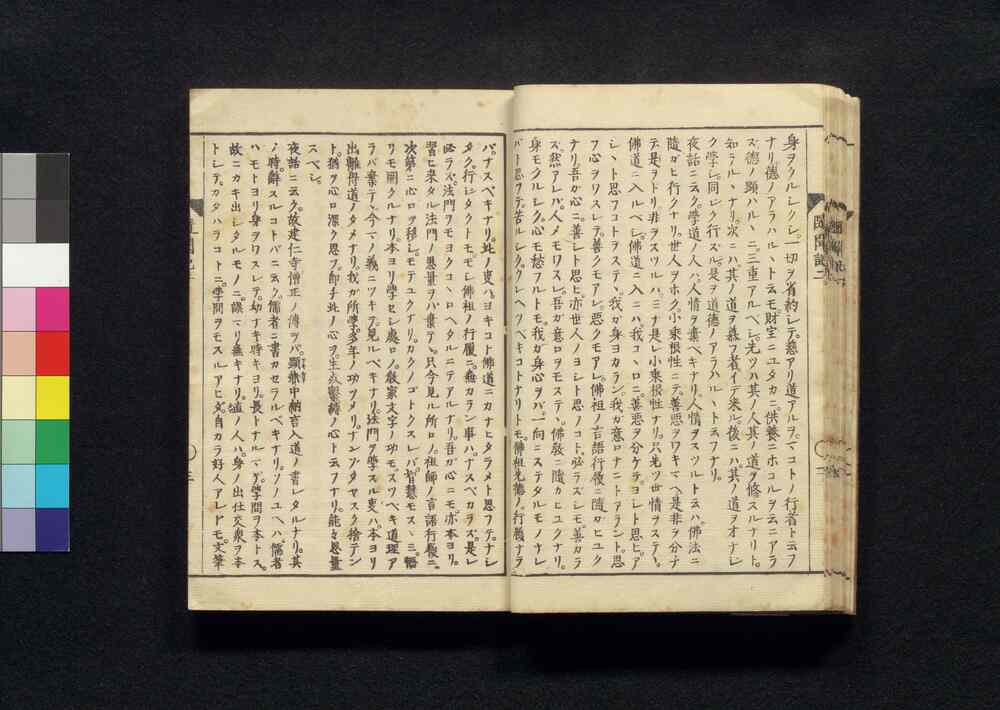 身ヲクルシクシ一切ヲ省約シテ慈アリ道アルヲマコトノ行者ト云フ
ナリ徳ノアラハルヽト云モ財宝ニユタカニ供養ニホコルヲ云ニアラ
ズ徳ノ顕ハルヽニ三重アルベシ先ツハ其ノ人其ノ道ヲ修スルナリト
知ラルヽナリ次ニハ其ノ道ヲ慕フ者イデ来ル後ニハ其ノ道ヲオナシ
ク学シ同シク行ズル是ヲ道徳ノアラハルヽト云フナリ
夜話ニ云ク学道ノ人ハ人情ヲ棄ベキナリ人情ヲスツルト云ハ佛法ニ
随ガヒ行クナリ世人ヲホク小乗根性ニテ善悪ヲワキマヘ是非ヲ分ナ
テ是ヲトリ非ヲスツルハミナ是レ小乗根性ナリ只先ツ世情ヲステヽ
佛道ニ入ルベシ佛道ニ入ニハ我コヽロニ善悪ヲ分ケテヨシト思ヒア
シヽト思フコトヲステヽ我ガ身ヨカラン我ガ意ロナニトアラント思
フ心ヲワスレテ善クモアレ悪クモアレ佛祖ノ言語行履ニ随カヒユク
ナリ吾ガ心ニ善シト思ヒ亦世人ノヨシト思ノコト必ラズシモ善カラ
ズ然アレバ人メモワスレ吾ガ意ロヲモステヽ佛教ニ随カヒユクナリ
身モクルシク心モ愁フルトモ我ガ身心ヲバ一向ニステタルモノナレ
バト思フテ苦ルシクウレヘツベキコトナリトモ佛祖先徳ノ行履ナラ
バナスベキナリ此ノ事ハヨキコト佛道ニカナヒタラメト思フテナシ
タク行ジタクトモモシ佛祖ノ行履ニ無カラン事ハナスベカラズ是レ
必ラズ法門ヲモヨクコヽロヘタルニテアルナリ吾ガ心ニモ亦本ヨリ
習ヒ来タル法門ノ思量ヲハ棄テヽ只今見ル所ロノ祖師ノ言語行履ニ
次第ニ心ロヲ移シモテユクナリカクノゴトクスレバ智慧モスヽミ悟
リモ開クルナリ本ヨリ学セシ處ロノ教家文字ノ功モスツベキ道理ア
ラバ棄テヽ今マノ義ニツキテ見ルベキナリ法門ヲ学スル事ハ本ヨリ
出離得道ノタメナリ我ガ所学多年ノ功ツメリナンゾタヤスク捨テン
ト猶ヲ心ロ深ク思フ即チ此ノ心ヲ生死繋縛ノ心ト云フナリ能々思量
スベシ
夜話ニ云ク故建仁寺僧正ノ傳ヲバ顕兼中納言入道ノ書レタルナリ其
ノ時辭スルコトバニ云ク儒者ニ書カセラルベキナリソノユヘハ儒者
ハモトヨリ身ヲワスレテ幼ナキ時キヨリ長トナルマデ学問ヲ本トス
故ニカキ出シタルモノニ誤マリ無キナリ直ノ人ハ身ノ出仕交衆ヲ本
トシテカタハラコトニ学問ヲモスルアヒダ自カラ好人アレドモ文筆
随聞記二